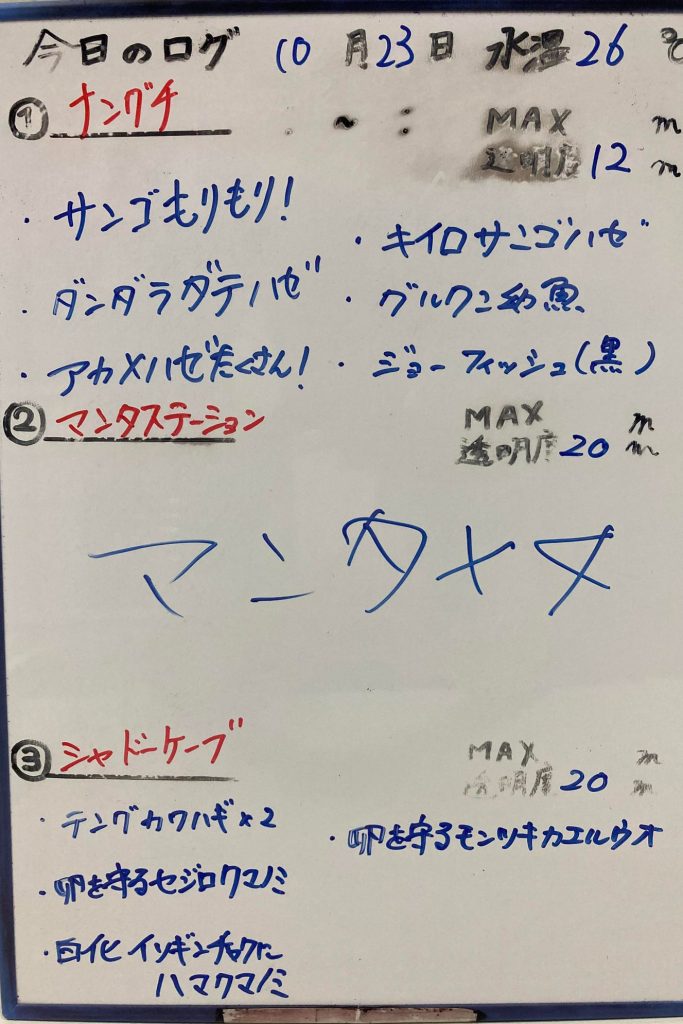 今日のログ 10月23日 水温26℃
① ナングチ . ~ : MAX m
透明度12m
・サンゴもりもり!
・キイロサンゴハゼ
・ダンダラダテハゼ
・グルクン幼魚
・アカメハゼたくさん!
・ジョーフィッシュ(黒)
② マンタステーション MAX m
透明度20m
マンタ×ヌ
③ シャドーケーブ MAX m
透明度20m
・テングカワハギ×2
・卵を守るモンツキカエルウオ
・卵を守るセジロクマノミ
・白化イソギンチャクに
ハマクマノミ